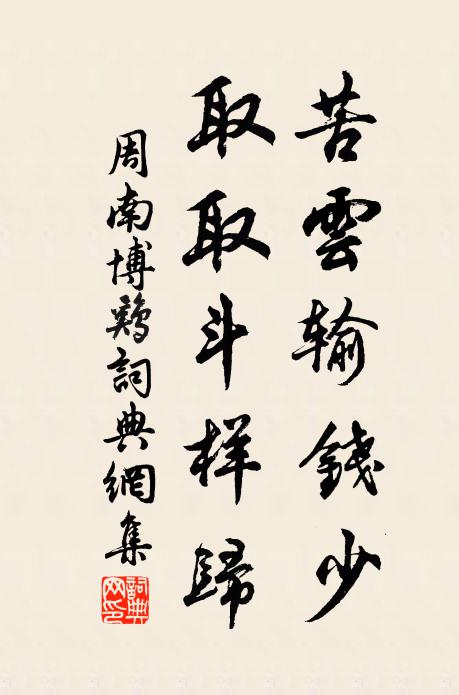 苦雲输錢少
取取斗样歸
周南博鷄詞典網集
詞典網印